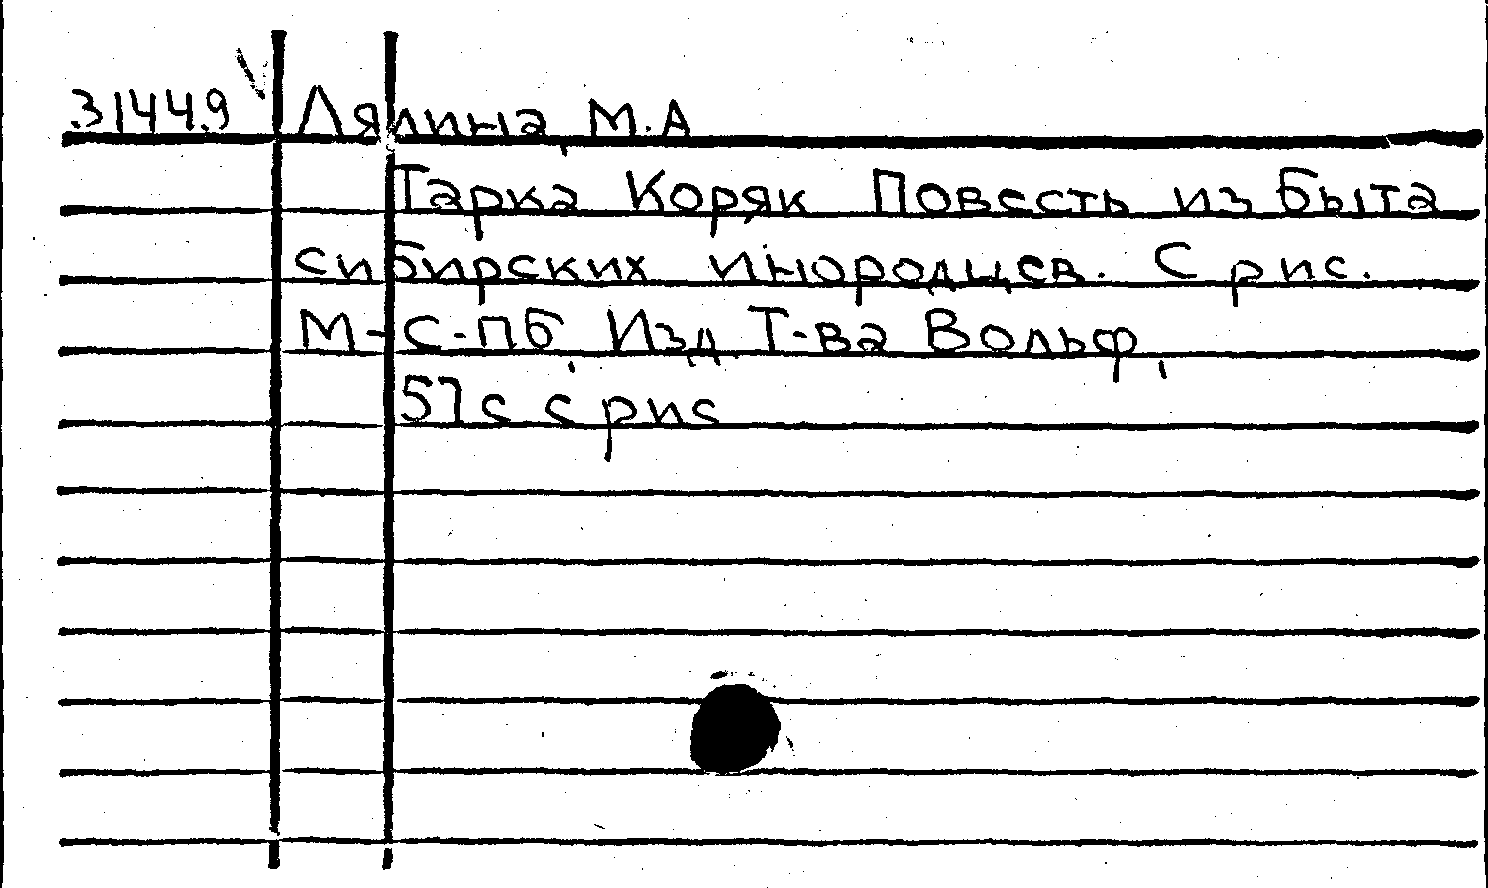 31449 Лялина, М.А
Тарка Коряк Повесть из быта
сибирских инородцев. С рис.
М-С-Пб, Изд. Т-ва Вольф,
57с с рис